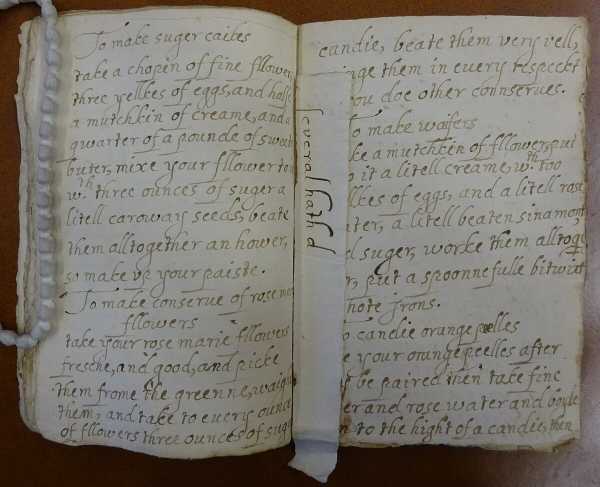 To make suger caikes
take a chopin of fine fllower,
three yellkes of eggs, and halfe
a mutchkin of creame, and a
quarter of a pounde of sweat
buter, mixe your fllower to
wth three ounces of suger a
litell caroway seeds, beate
them alltogether an hower,
so make up your paiste.
To make conserve of rose ma
fllowers
take your rose marie fllowers
fresche, and good, and picke
them frome the greenne, waigh
them, and take to every ounce
of fllowers three ounces of suge
candie, beate them very vell,
them in every respeckt
you doe other connserves.
To make waifers
ke a mutchkin of fllower, put
o it a litell creame, wth too
llkes of eggs, and a litell rose
ater, a litell beaten sinamon
d suger, worke them alltoge
r, put a spoonnefulle bitwixt
hote Irons.
o candie orange peelles
e your orange peelles after
be paired then take fine
er and rose water and boyle
to the hight of a candie, then
severall hath d